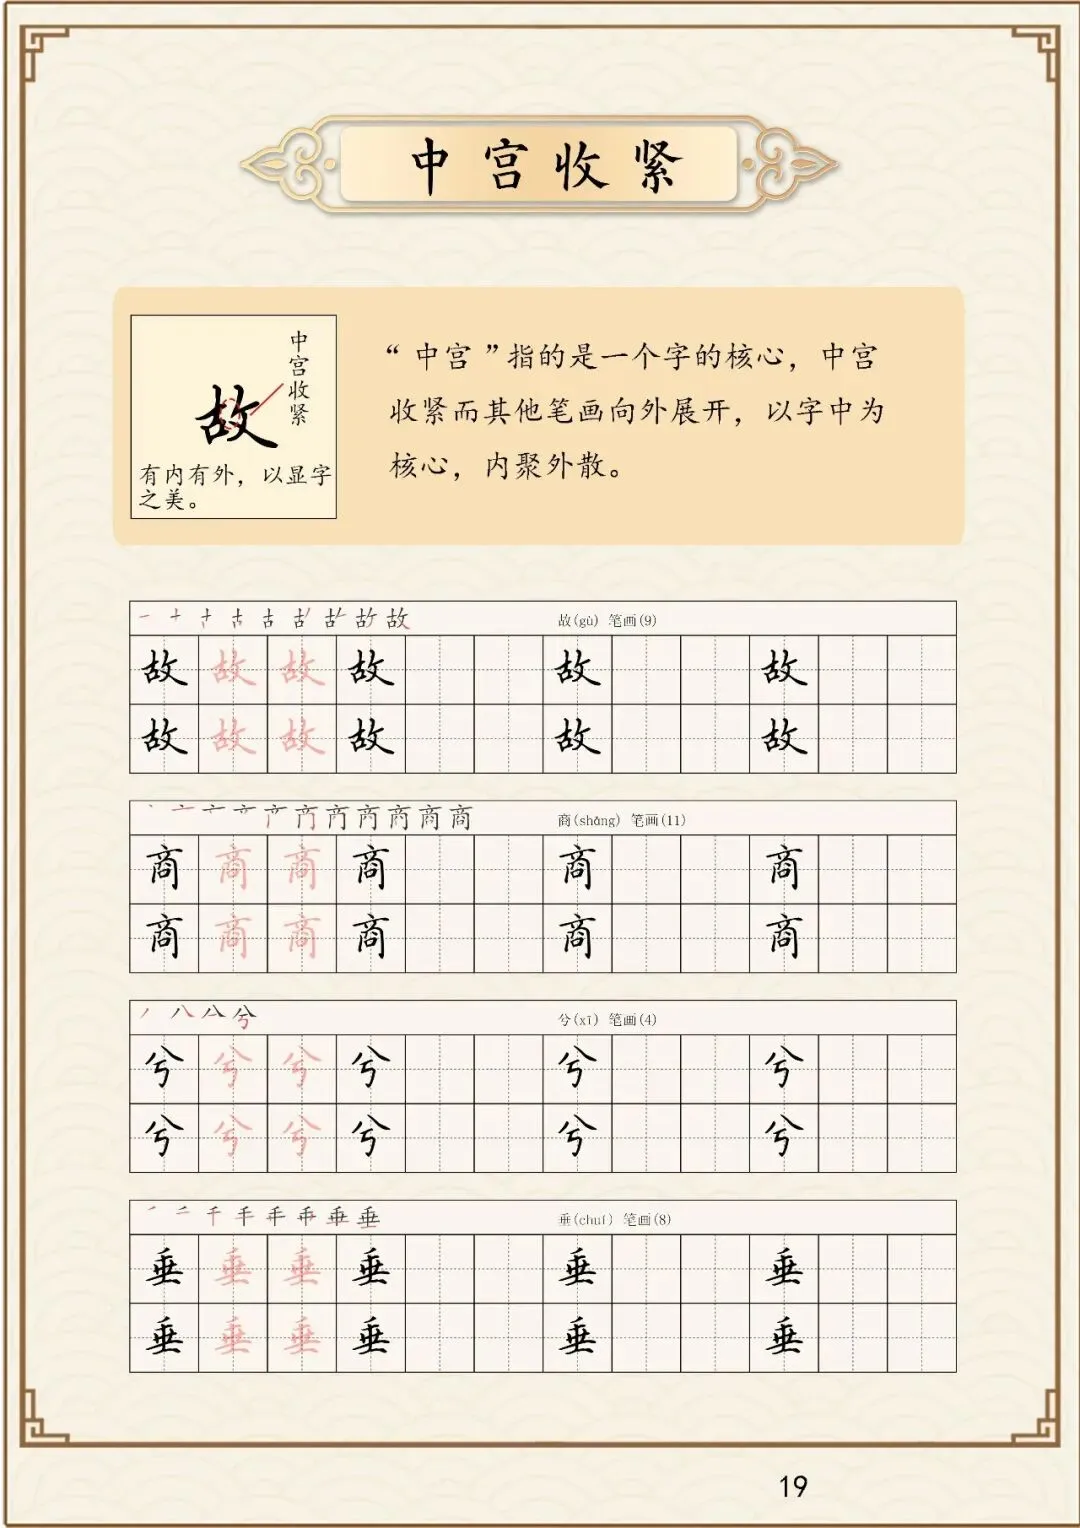 中宫收紧
中宫收紧
故
有内有外，以显字
之美。
“中宫”指的是一个字的核心，中宫
收紧而其他笔画向外展开，以字中为
核心，内聚外散。
故 故(gù) 笔画(9)
故 故 故 故 故 故
故 故 故 故 故 故
商 商(shāng) 笔画(11)
商 商 商 商 商 商
商 商 商 商 商 商
兮 兮(xī) 笔画(4)
兮 兮 兮 兮 兮 兮
兮 兮 兮 兮 兮 兮
垂 垂(chuí) 笔画(8)
垂 垂 垂 垂 垂 垂
垂 垂 垂 垂 垂 垂
19